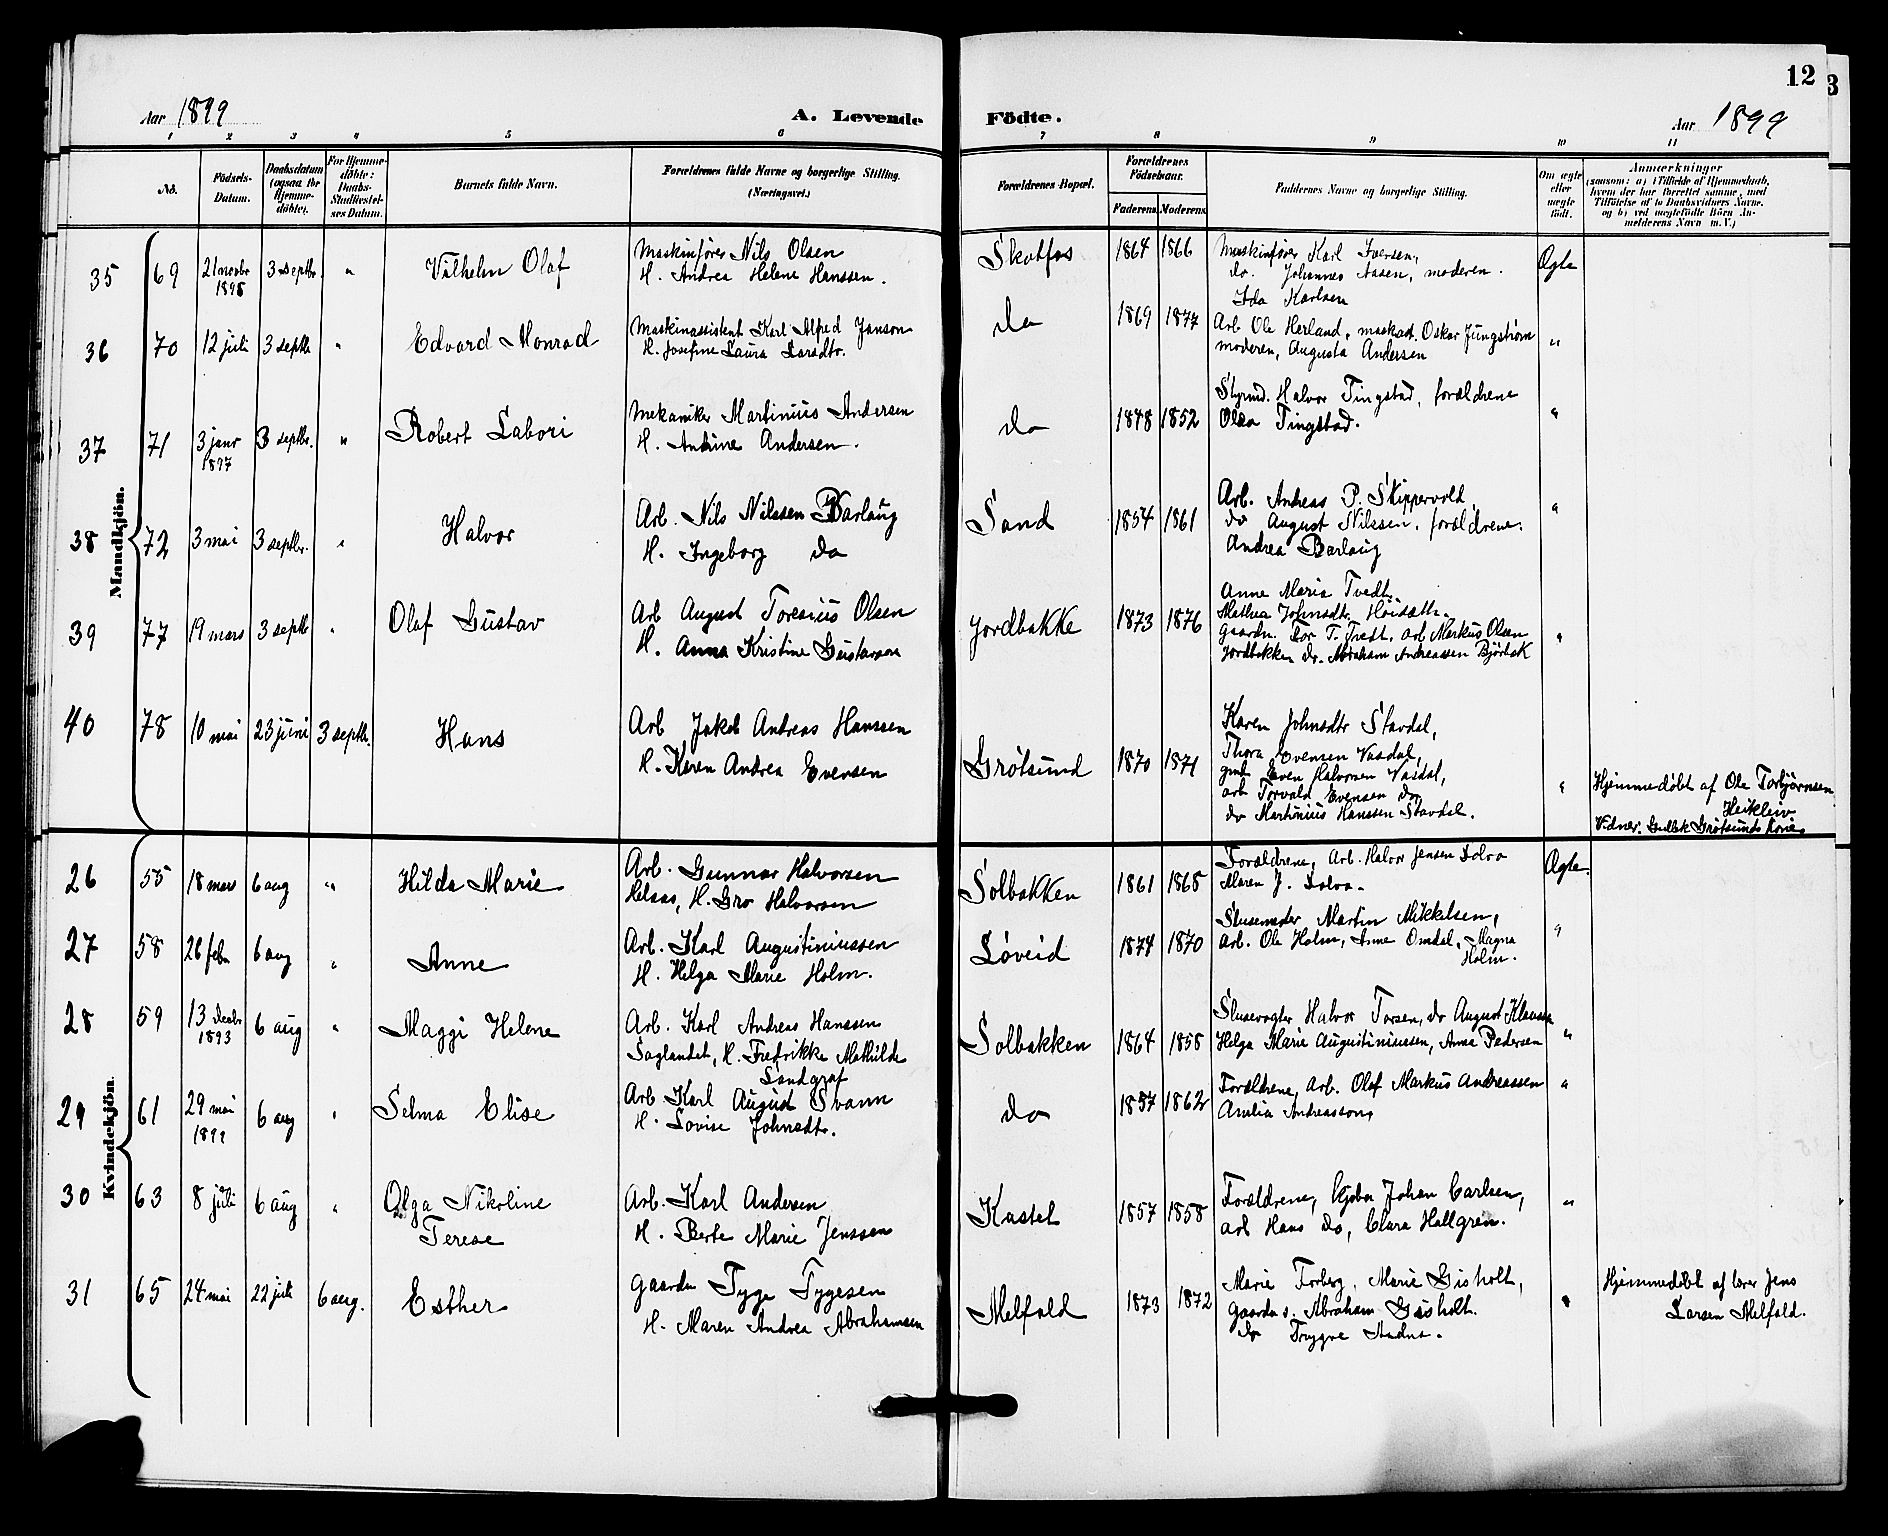 12
3
Aar 1899 A. Levende Födte. Aar 1899
1 2 3 4 5 6 7 8 9 10 11
No.
Födsels-
Datum.
Daabsdatum
(ogsaa for
Hjemme-
döbte).
For Hjemme-
döbte:
Daabs-
Stadfæstel-
ses Datum.
Barnets fulde Navn.
Forældrenes fulde Navne og borgerlige Stilling.
(Næringsvei.)
Forældrenes Bopæl.
Forældrenes
Födselsaar.
Faderens. Moderens.
Faddernes Navne og borgerlige Stilling.
Om ægte
eller
uægte
födt.
Anmærkninger
(saasom: a) i Tilfælde af Hjemmedaab,
hvem der har forrettet samme, med
Tilföielse af to Daabsvidners Navne.
og b) ved uægtefödte Börn An-
melderens Navn m. V.)
Mandkjön.
35 69 21 novbr 1898 3 septbr. " Vilhelm Olaf
Maskinfører Nils Olsen
H. Andrea Helene Hanssen.
Skotfos 1864 1866
Maskinfører Karl Iversen,
do. Johannes Aasen, moderen.
Ida Karlsen
Ægte
36 70 12 juli 3 septbr " Edvard Monrad
Maskinassistent Karl Alfred Janson
H. Josefine Laura Larsdtr.
do 1869 1877
Arb Ole Herland, maskast. Oskar Jungstrøm
moderen, Augusta Andersen
"
37 71 3 janr 1897 3 septbr. " Robert Labori
Mekaniker Martinius Andersen
H. Andrine Andersen.
do 1848 1852
Styrmd. Halvor Tingstad, forældrene
Olea Tingstad.
"
38 72 3 mai 3 septbr. " Halvor
Arb. Nils Nilssen Barlaug
H. Ingeborg do
Sand 1854 1861
Arb. Andreas P. Skippervold,
do August Nilssen, forældrene,
Andrea Barlaug
"
39 77 19 mars 3 septbr " Olaf Gustav
Arb August Toresius Olsen
H. Anna Kristine Gustavsen
Jordbakke 1873 1876
Anne Maria Tvedt,
Mathea Johnsdtr. Høisæth.
Gaardm. Tor T. Tvedt, arb Markus Olsen
Jordbakken do. Abraham Andreassen Bjørbæk
"
40 78 10 mai 23 juni 3 septbr. Hans
Arb Jakob Andreas Hanssen
H. Karen Andrea Evensen
Grøtsund 1870 1871
Karen Johnsdtr Stavdal,
Thora Evensen Vasdal,
gmd. Even Halvorsen Vasdal,
arb Torvald Evensen do,
do Martinius Hanssen Stavdal.
"
Hjemmedøbt af Ole Torbjørnsen
Heikleiv
Vidner: Gudbr. Grøtsunds Kone
Kvindekjön.
26 55 18 mars 6 aug " Hilda Marie
Arb. Gunnar Halvorsen
Helaas, H. Gro Halvorsen
Solbakken 1861 1868
Forældrene, Arb. Halvor Jensen Dolva
Maren J. Dolva.
Ægte.
27 58 26 febr 6 aug " Anne
Arb. Karl Augustiniussen
H. Helga Marie Holm.
Løveid 1874 1870
Slusemester Martin Mikkelsen,
arb. Ole Holm, Anne Omdal, Magna
Holm.
"
28 59 13 decbr 1893 6 aug " Maggi Helene
Arb. Karl Andreas Hanssen
Saglandet, H. Fredrikke Mathilde
Landgraf
Solbakken 1864 1858
Slusevogter Halvor Torsen, do August Klausen
Helga Marie Augustiniussen, Anne Pedersen
"
29 61 29 mai 1899 6 aug " Selma Elise
Arb Karl August Svann
H. Lovise Johnsdtr.
do 1857 1862
Forældrene, Arb. Olaf Markus Andreassen
Amalia Andreasson,
"
30 63 8 juli 6 aug " Olga Nikoline
Terese
Arb. Karl Andersen
H. Berte Marie Jenssen
Kastet 1857 1858
Forældrene, Gjøbr Johan Carlsen,
arb Hans do, Clara Hallgren.
"
31 65 24 mai 22 juli 6 aug. Esther
Gaardm Tyge Tygesen
H. Maren Andrea Abrahamsen
Melfald 1873 1872
Marie Forberg, Marie Gisholt,
Gaardm s. Abraham Gisholt.
do Trygve
"
Hjemmedøbt af lærer Jens
Larsen Melfald.